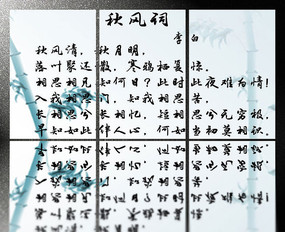 秋风词
李白
秋风清，秋月明，
落叶聚还散，寒鸦栖复惊，
相思相见知何日？此时此夜难为情！
入我相思门，知我相思苦，
长相思兮长相忆，短相思兮无穷极，
早知如此绊人心，何如当初莫相识。